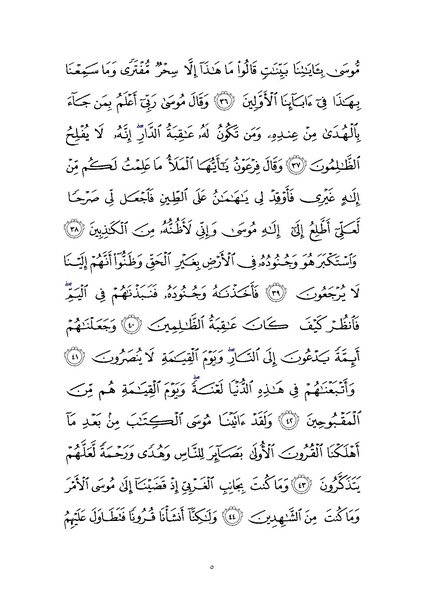 مُّوسَىٰ بِـَٔايَٰتِنَا بَيِّنَٰتٍ قَالُوا۟ مَا هَٰذَآ إِلَّا سِحْرٌ مُّفْتَرًى وَمَا سَمِعْنَا
بِهَٰذَا فِىٓ ءَابَآئِنَا ٱلْأَوَّلِينَ ٣٦ وَقَالَ مُوسَىٰ رَبِّىٓ أَعْلَمُ بِمَن جَآءَ
بِٱلْهُدَىٰ مِنْ عِندِهِۦ وَمَن تَكُونُ لَهُۥ عَٰقِبَةُ ٱلدَّارِ ۖ إِنَّهُۥ لَا يُفْلِحُ
ٱلظَّٰلِمُونَ ٣٧ وَقَالَ فِرْعَوْنُ يَٰٓأَيُّهَا ٱلْمَلَأُ مَا عَلِمْتُ لَكُم مِّنْ
إِلَٰهٍ غَيْرِى فَأَوْقِدْ لِى يَٰهَٰمَٰنُ عَلَى ٱلطِّينِ فَٱجْعَل لِّى صَرْحًا
لَّعَلِّىٓ أَطَّلِعُ إِلَىٰٓ إِلَٰهِ مُوسَىٰ وَإِنِّى لَأَظُنُّهُۥ مِنَ ٱلْكَٰذِبِينَ ٣٨
وَٱسْتَكْبَرَ هُوَ وَجُنُودُهُۥ فِى ٱلْأَرْضِ بِغَيْرِ ٱلْحَقِّ وَظَنُّوٓا۟ أَنَّهُمْ إِلَيْنَا
لَا يُرْجَعُونَ ٣٩ فَأَخَذْنَٰهُ وَجُنُودَهُۥ فَنَبَذْنَٰهُمْ فِى ٱلْيَمِّ ۖ
فَٱنظُرْ كَيْفَ كَانَ عَٰقِبَةُ ٱلظَّٰلِمِينَ ٤٠ وَجَعَلْنَٰهُمْ
أَئِمَّةً يَدْعُونَ إِلَى ٱلنَّارِ ۖ وَيَوْمَ ٱلْقِيَٰمَةِ لَا يُنصَرُونَ ٤١
وَأَتْبَعْنَٰهُمْ فِى هَٰذِهِ ٱلدُّنْيَا لَعْنَةً ۖ وَيَوْمَ ٱلْقِيَٰمَةِ هُم مِّنَ
ٱلْمَقْبُوحِينَ ٤٢ وَلَقَدْ ءَاتَيْنَا مُوسَى ٱلْكِتَٰبَ مِنۢ بَعْدِ مَآ
أَهْلَكْنَا ٱلْقُرُونَ ٱلْأُولَىٰ بَصَآئِرَ لِلنَّاسِ وَهُدًى وَرَحْمَةً لَّعَلَّهُمْ
يَتَذَكَّرُونَ ٤٣ وَمَا كُنتَ بِجَانِبِ ٱلْغَرْبِىِّ إِذْ قَضَيْنَآ إِلَىٰ مُوسَى ٱلْأَمْرَ
وَمَا كُنتَ مِنَ ٱلشَّٰهِدِينَ ٤٤ وَلَٰكِنَّآ أَنشَأْنَا قُرُونًا فَتَطَاوَلَ عَلَيْهِمُ
٥